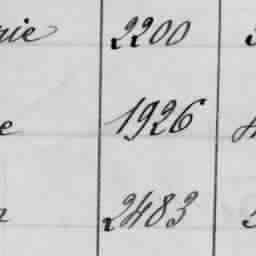 rie 2200
e 1926
2483